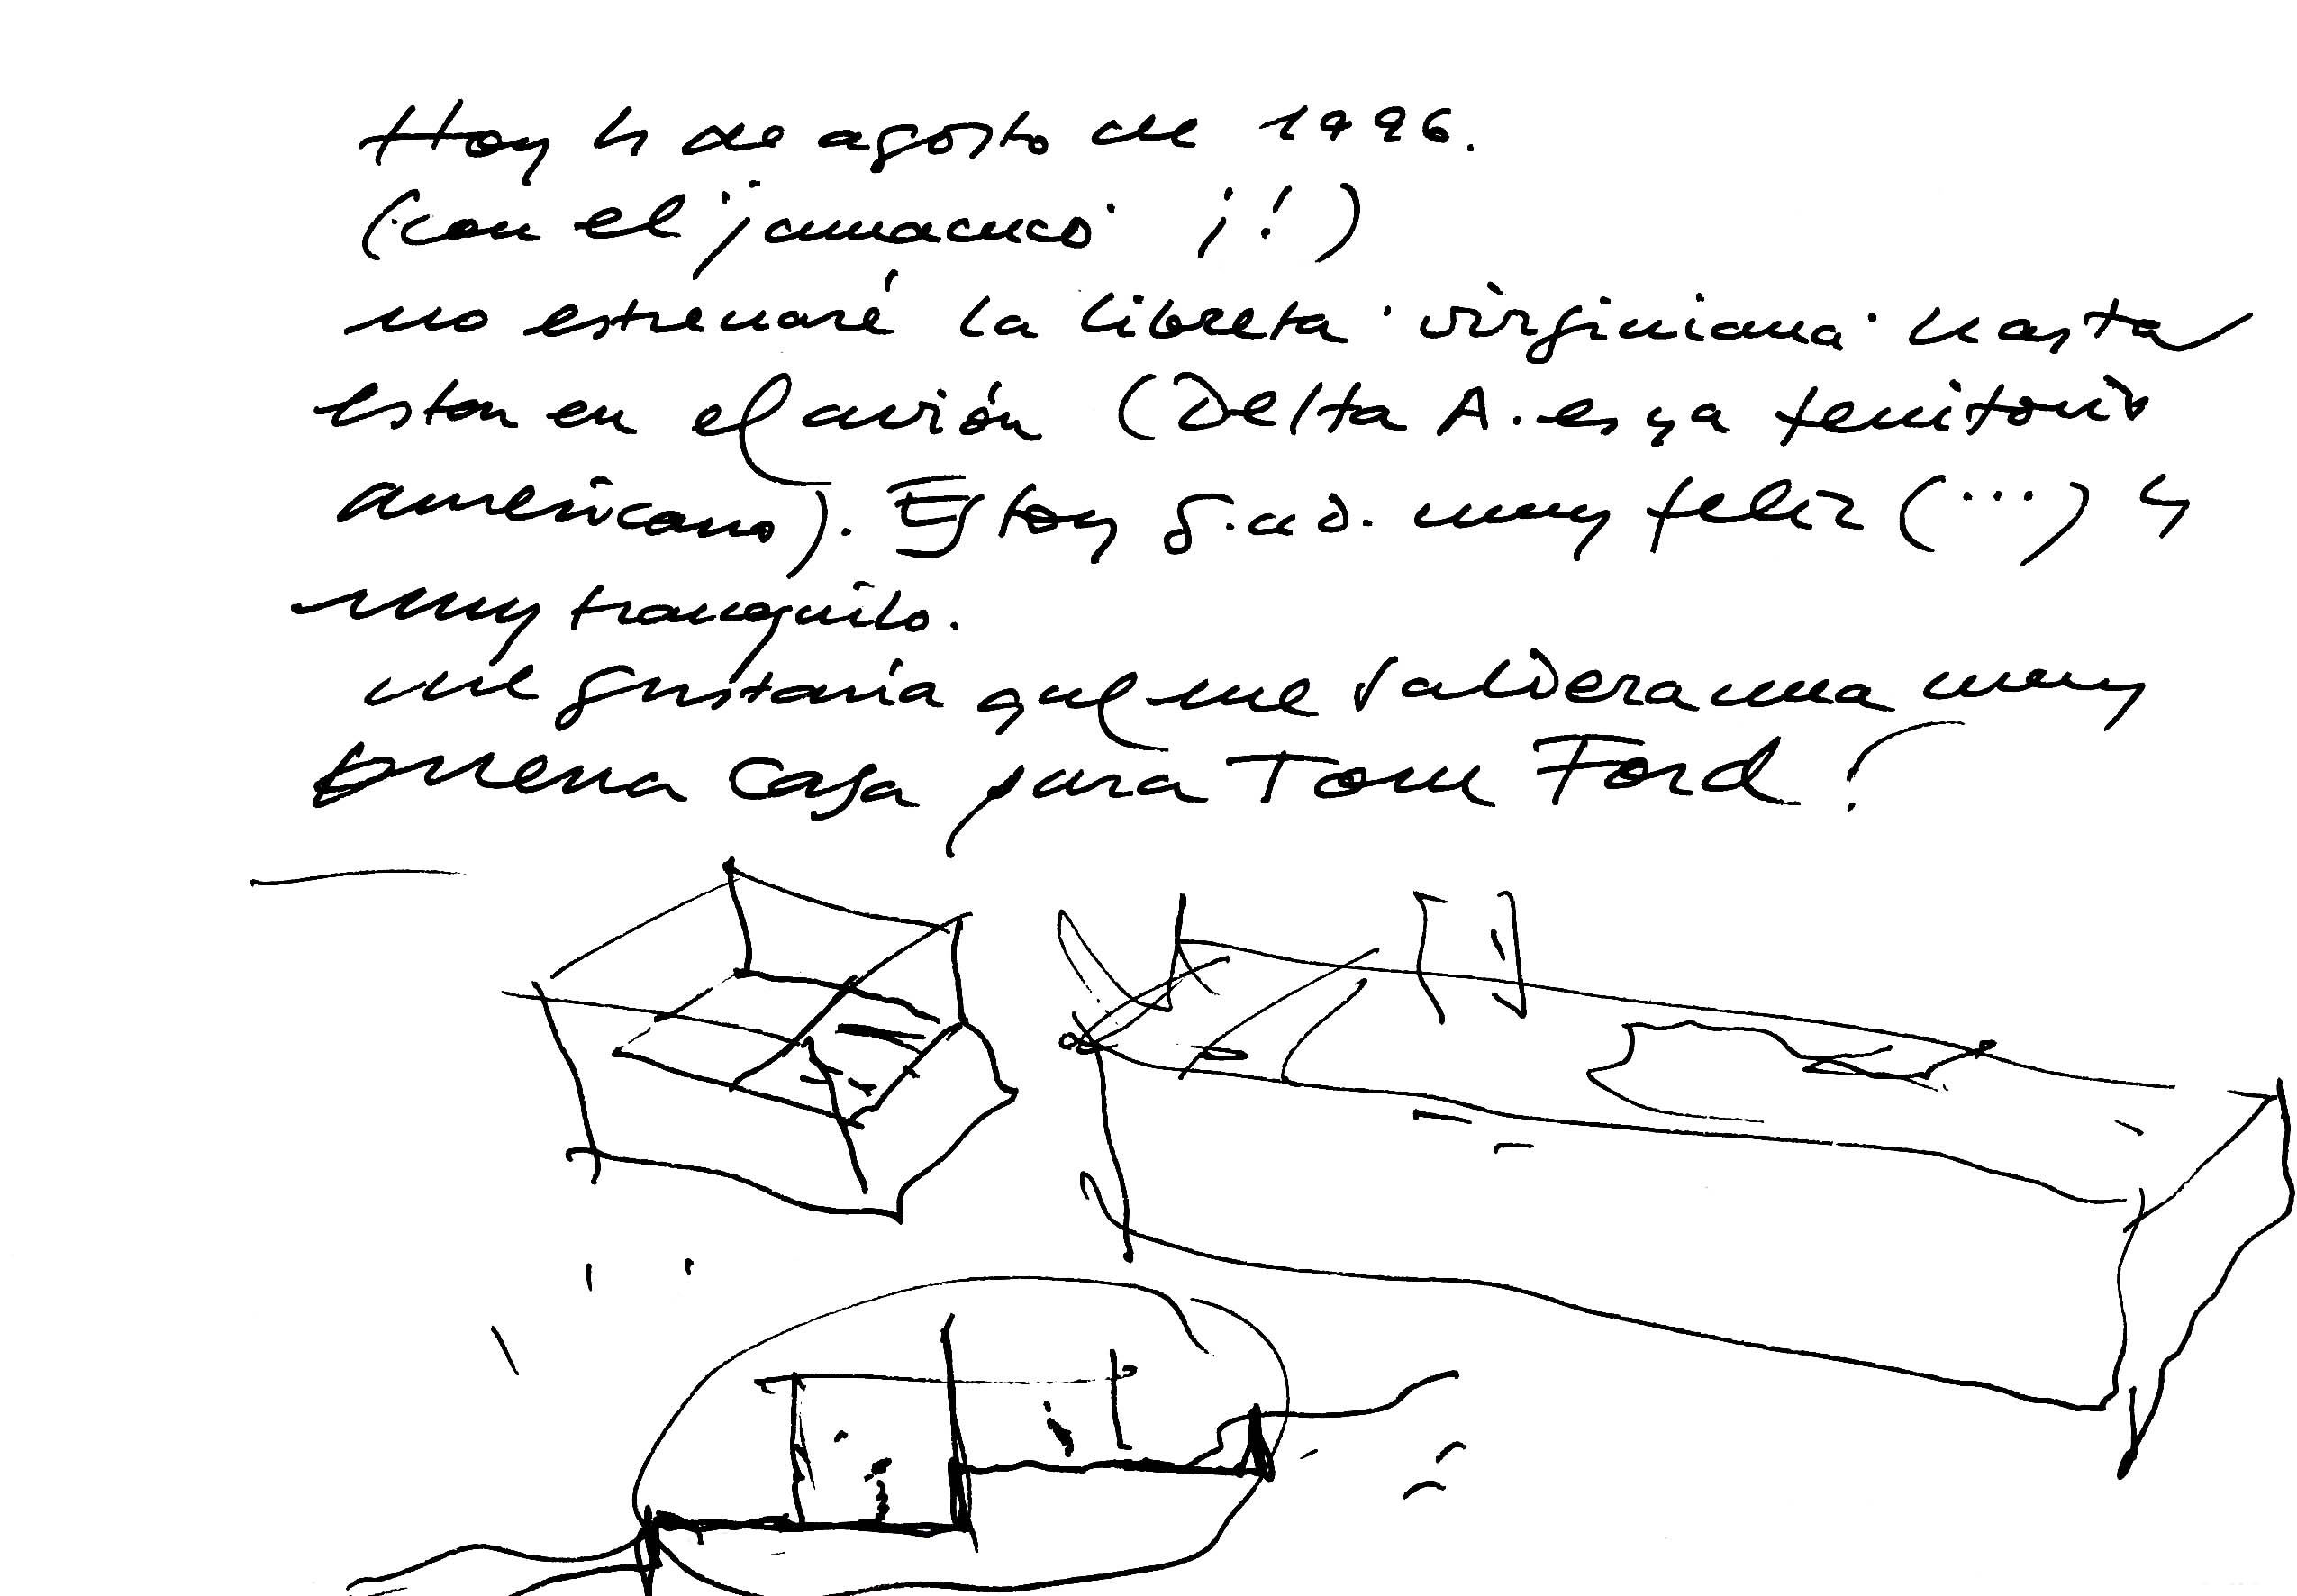 Hoy 4 de agosto de 1996.
(con el "jamacuco" ¡!)
no estrenaré la libreta "virginiana" hasta
estar en el avión (Delta A. es ya territorio
americano). Estoy g.a.D. muy feliz (...) y
muy tranquilo.
me gustaría que me saliera una muy
buena casa para Tom Ford!